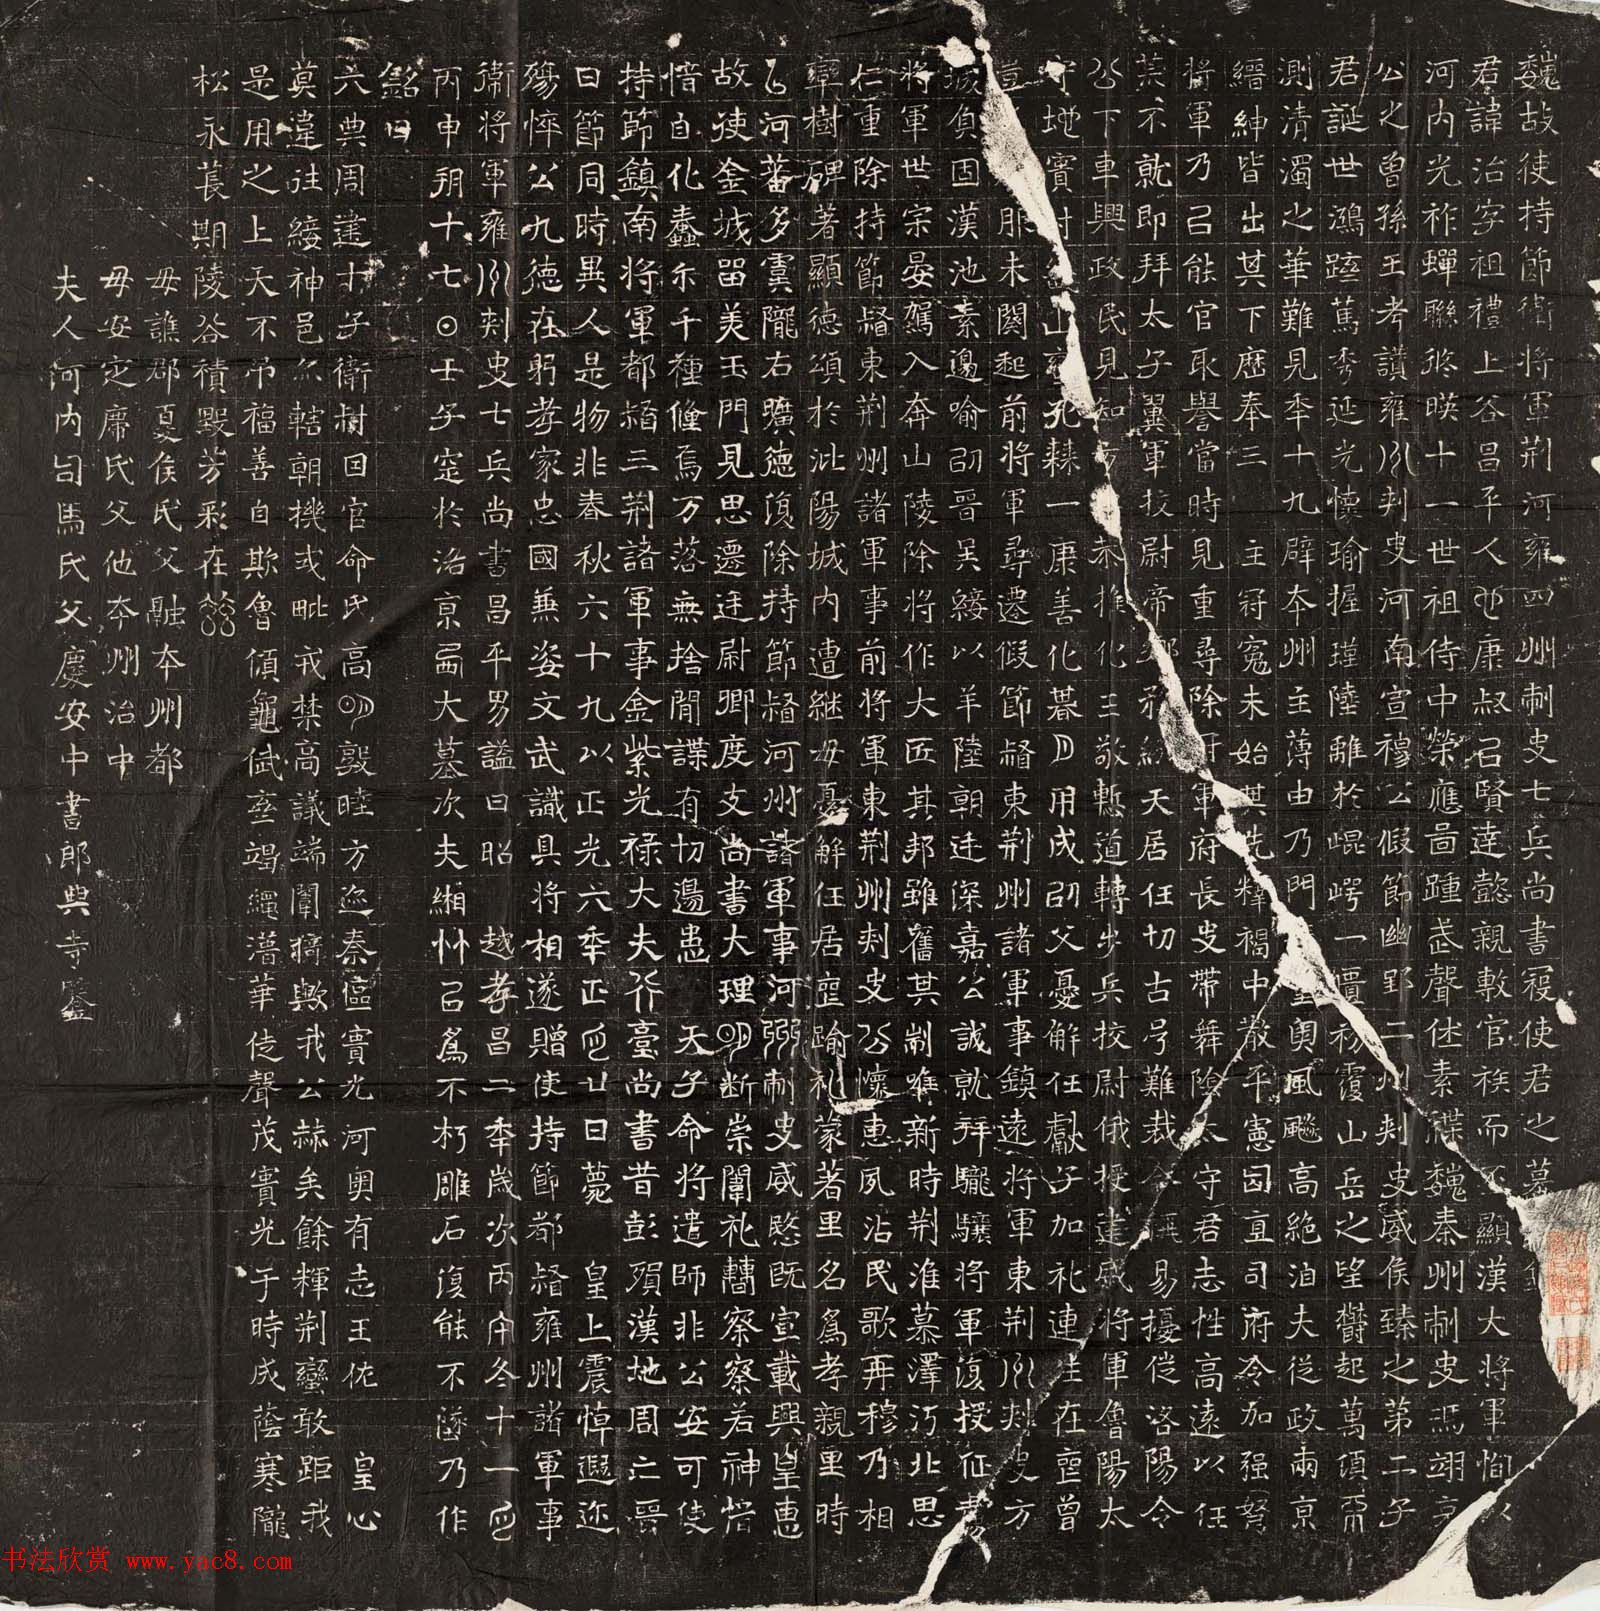 魏故使持節衛將軍荊河雍四州刺史七兵尚書寇使君之墓
君諱治字祖禮上谷昌平人也康叔以賢達懿親敷官族而丕顯漢大將軍恂以
河內光祚蟬聯終暎十一世祖侍中榮應啚踵武聲休素牒魏秦州刺史馮翊哀
公之曾孫王考讚雍州刺史河南宣穆公假節幽郢二州刺史威侯臻之第二子
君誕世鴻蹤篤秀延光懷瑜握瑾陸離於崐崿一匱初霞山岳之望欝起萬頃而
測清濁之華難見年十九辟本州主薄由乃門望輿風飈高絕洎夫從政兩京
縉紳皆出其下歷奉三主冠冕未始其先釋褐中散平憲囧直司府令加强弩
將軍乃以能官取譽當時見重尋除冠軍府長史帶舞陰太守君志性高遠以任
荒不就即拜太子翼軍校尉帝鄉天居任切古号難裁令稱易擾徙洛陽令
公下車興政民見知方恭推化三敬慙道轉步兵校尉俄授建威將軍魯陽太
守地實對山蠻孔棘一康善化朞月用成邵父憂解任獻子加礼連性在堊曾
服未闋起前將軍尋遷假節督東荊州諸軍事鎮遠將軍東荊州刺史方
城負固漢池素邊喻召晉吳綏以羊陸朝廷深嘉公誠就拜驤將軍復授征虜
將軍世宗晏駕入奔山陵除將作大匠其邦雖舊其制唯新時荊淮慕澤沔北思
仁重除持節督東荊州諸軍事前將軍東荊州刺史公懷惠夙沾民歌再穆乃相
率樹碑著顯德頌於沘陽城內遭継母憂解任居堊踰礼蒙著里名爲孝親里時
以河蕃多虞隴右曠德復除持節督河州諸軍事河州刺史威愍既宣載興皇惠
故徙金城留美玉門見思遷廷尉卿度支尚書大理明断崇闈礼闥察察若神愔
愔自化蠢尒千種儵焉万落無捨閒諜有切邊患 天子命將遣師非公安可使
持節鎮南將軍都督三荊諸軍事金紫光祿大夫行臺尚書昔彭殞漢地周亡晉
日節同時異人是物非春秋六十九以正光六年正月廿日薨 皇上震悼遐迩
殤悴公九德在躬孝家忠國兼姿文武識具將相遂贈使持節都督雍州諸軍事
衛將軍雍州刺史七兵尚書昌平男謚曰昭 越孝昌二年歲次丙午冬十一月
丙申朔十七日壬子窆於洛京西大墓次夫緗竹以爲不朽雕石復能不墜乃作
銘曰
六典周建才子衛封因官命氏高明敦睦方迩秦區寶光河奧有志王佐 皇心
莫違往綏神邑尒轄朝機或毗戎禁高議端闈猗歟我公赫矣餘輝荊蠻敢距我
是用之上天不吊福善自欺魯傾龜弑垄竭繩潛華徒聲茂實光于時成蔭寒隴
松永萇期陵谷積毀芳彩在茲
母譙郡夏侯氏父融本州都
母安定席氏父他本州治中
夫人河內司馬氏父慶安中書郎典寺鑒
书法欣赏 www.yac8.com